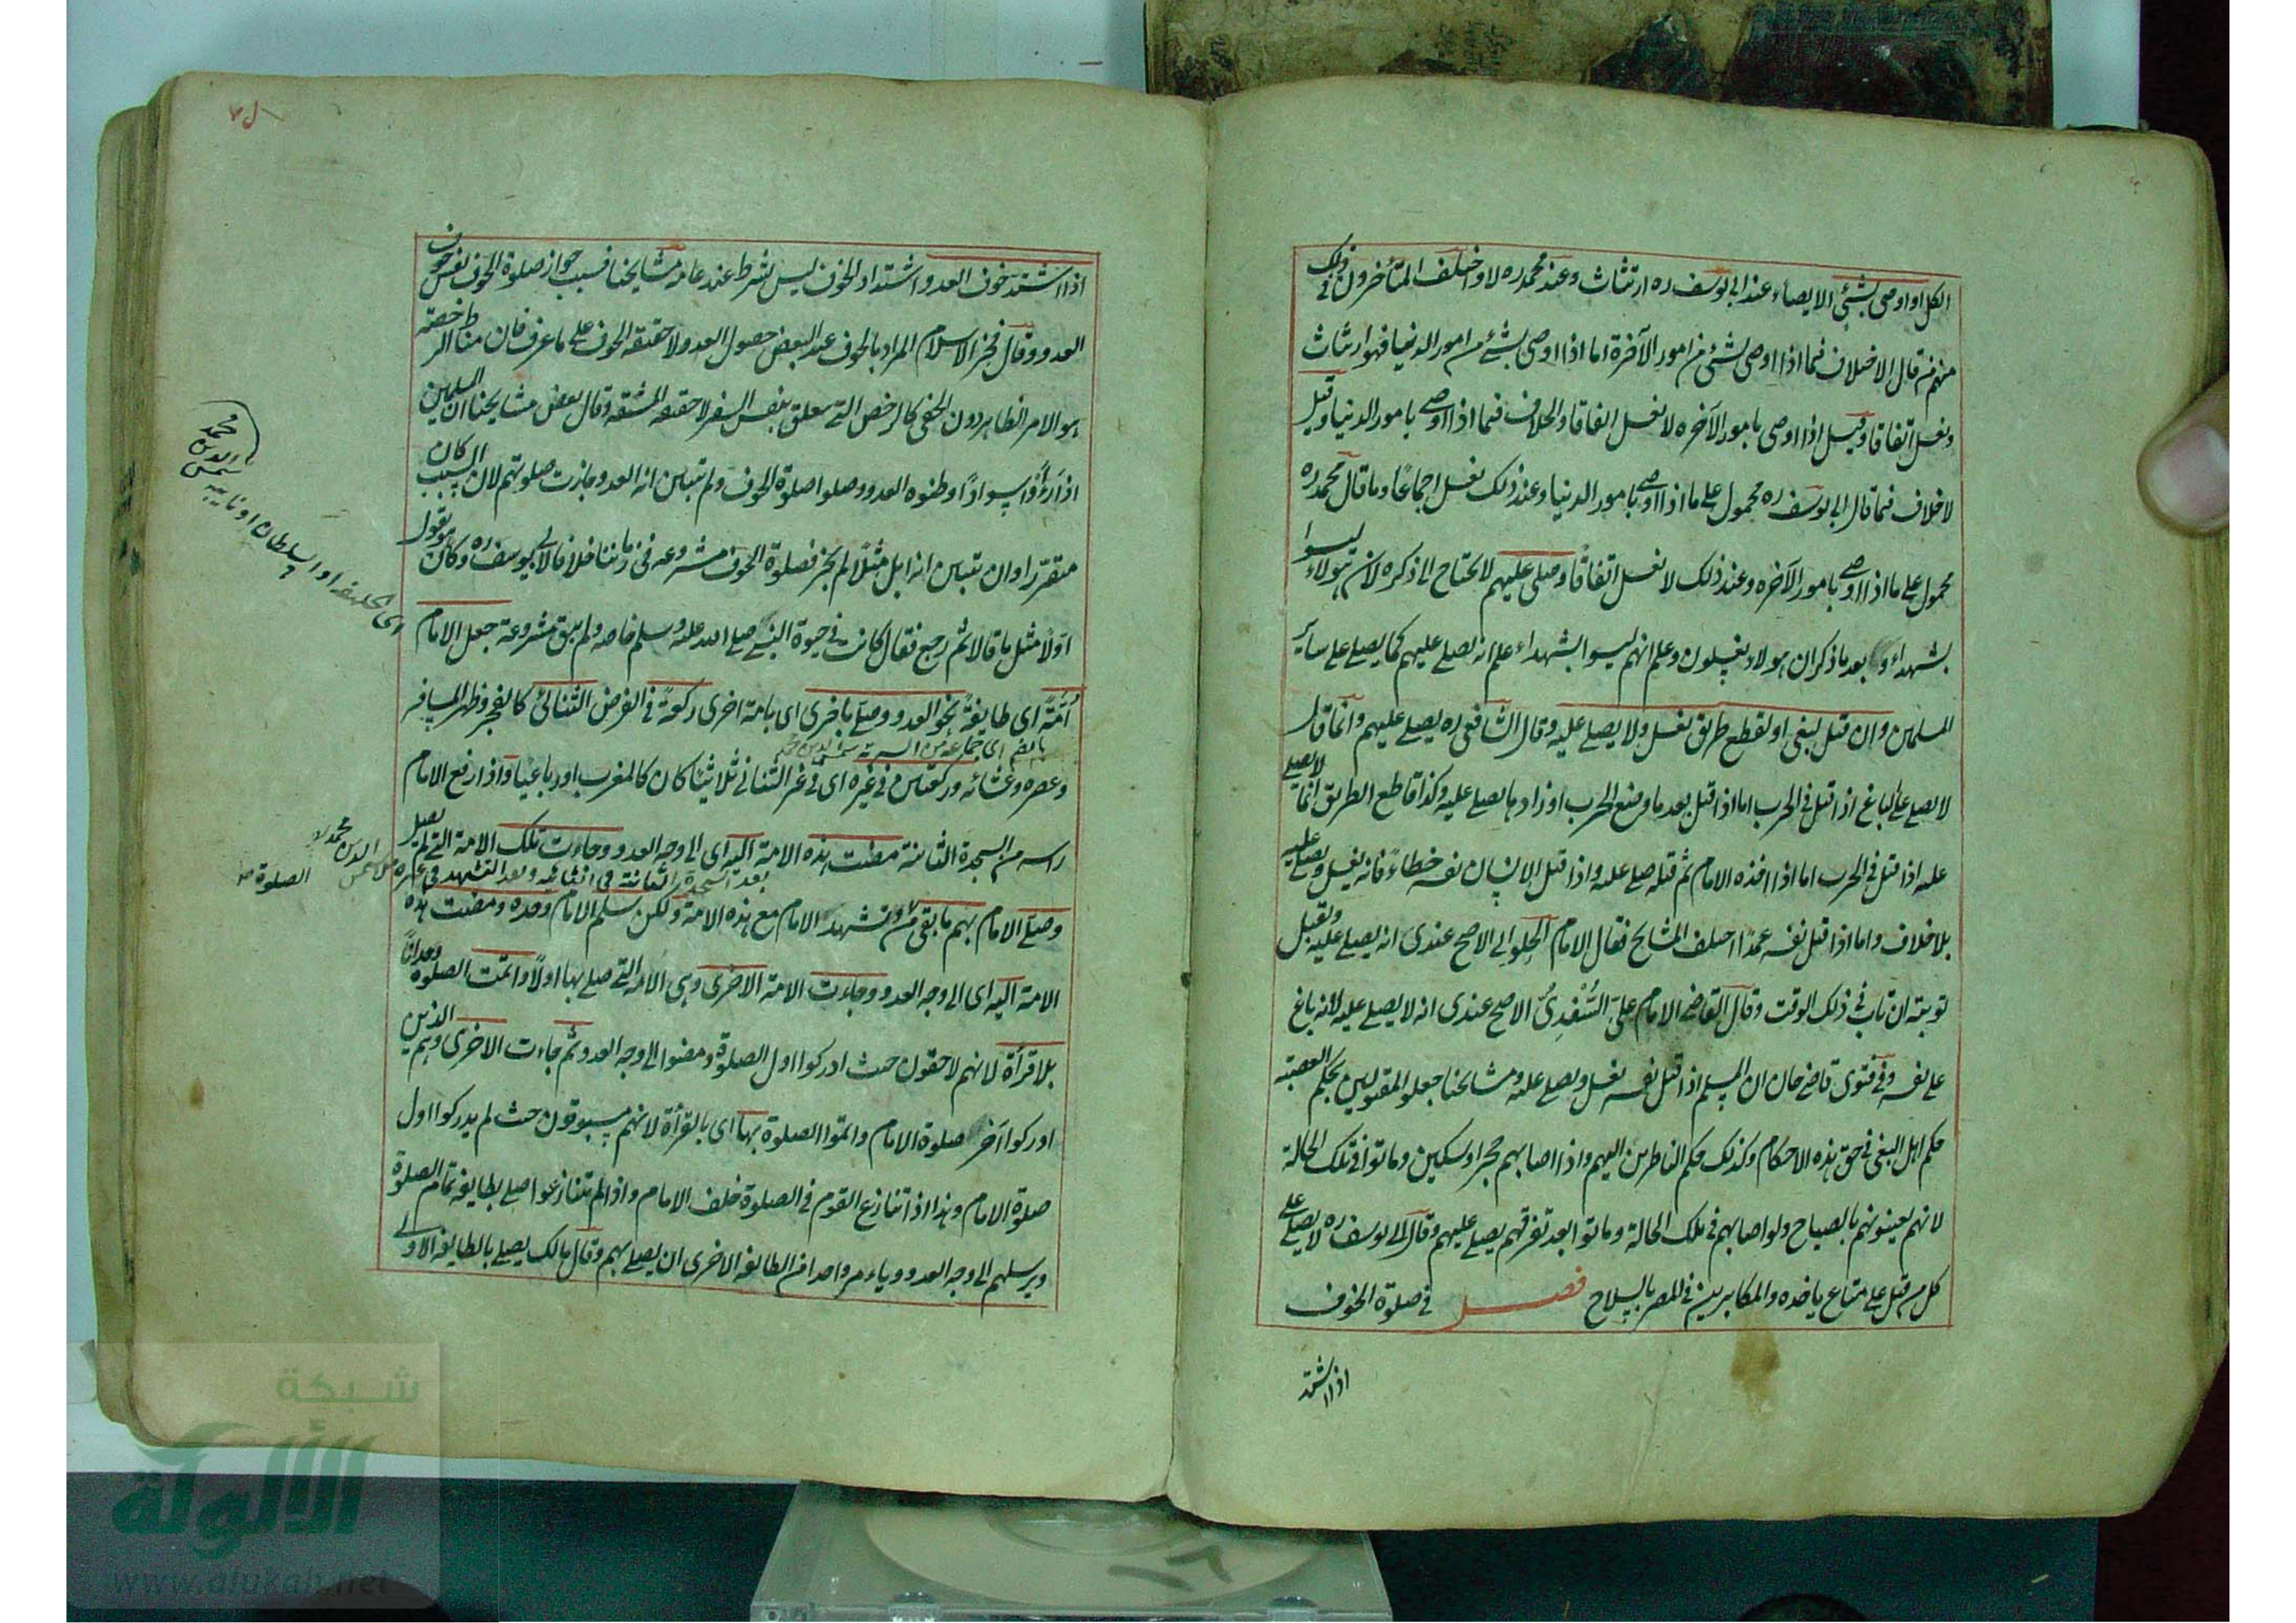 الكل او اوصى بشيئ الايصاء عند ابى يوسف ره ارتثاث وعند محمد ره لا واختلف المتأخرون فى ذلك
منهم من قال الاختلاف فيما اذا اوصى بشئ من امور الآخرة اما اذا اوصى بشئ من امور الدنيا فهو ارتثاث
ويغسل اتفاقا وقيل اذا اوصى بامور الآخره لا يغسل اتفاقا والخلاف فيما اذا اوصى بامور الدنيا وقيل
لا خلاف فيما قال ابى يوسف ره محمول على ما اذا اوصى بامور الدنيا وعند ذلك يغسل اجماعًا وما قال محمد ره
محمول على ما اذا اوصى بامور الآخره وعند ذلك لا يغسل اتفاقًا وصلى عليهم لا يحتاج الى ذكره لان هولاء ليسوا
بشهداء و بعد ما ذكر ان هولاء يغسلون وعلم انهم ليسوا بشهداء علم انه يصلى عليهم كما يصلى على سائر
المسلمين وان قتل لبغى او لقطع طريق يغسل ولا يصلى عليه وقال الشافعى ره يصلى عليهم وانما قال
لا يصلى على الباغ اذا قتل فى الحرب اما اذا قتل بعد ما وضع الحرب اوزارها يصلى عليه وكذا قاطع الطريق انما لا يصلى
عليه اذا قتل فى الحرب اما اذا اخذه الامام ثم قتله صلى عليه واذا قتل الانسان نفسه خطاءً فانه يغسل ويصلى عليه
بلا خلاف واما اذا قتل نفسه عمدًا اختلف المشايخ فقال الامام الحلوائى الاصح عندى انه يصلى عليه وتقبل
توبته ان تاب فى ذلك الوقت وقال القاضى الامام على السُّغدىُّ الاصح عندى انه لا يصلى عليه لانه باغ
على نفسه وفى فتوى قاضى خان ان المسلم اذا قتل نفسه يغسل ويصلى عليه ومشايخنا جعلوا المقتولين بحكم العصبة
حكم اهل البغى فى حق هذه الاحكام وكذلك حكم الناظرين اليهم واذا اصابهم حجر او سكين وماتوا فى تلك الحالة
لانهم يعينونهم بالصياح ولو اصابهم فى تلك الحالة وماتوا بعد تفرقهم يصلى عليهم وقال ابى يوسف ره لا يصلى على
كل من قتل على متاع ياخذه والمكابرين فى المصر بالسلاح فصل فى صلوة الخوف
اذا اشتد
اذا اشتد خوف العدو واشتداد الخوف ليس بشرط عند عامه مشايخنا فسبب جواز صلوة الخوف نفس خوف
العدو وقال فخر الاسلام المراد بالخوف عند البعض حصول العدو لا حقيقه الخوف على ما عرف فان مناط الرخصة
هو الامر الظاهر دون الخفى كالرخص التى تتعلق بنفس السفر لا حقيقه المشقه وقال بعض مشايخنا ان المسلمين
اذا رءوا سوادًا وظنوه العدو وصلوا صلوة الخوف ولم يتبين انه العدو جازت صلوتهم لان السبب كان
متقررا وان تبين انه ابل مثلًا لم يجز فصلوة الخوف مشروعه فى زماننا خلافا لابى يوسف ره وكان هو يقول
اولًا مثل ما قالا ثم رجع فقال كانت فى حيوة النبى صلى الله عليه وسلم خاصه ولم يبق مشروعة جعل الامام
اُمّةً اى طايفةً نحو العدو وصلى باخرى اى بامة اخرى ركعةً فى الفرض الثنائى كالفجر وظهر المسافر
بالضم اى جماعه من السرية شمس الدين محمد
وعصره وعشائه وركعتين فى غيره اى فى غير الثنائى ثلاثيًا كان كالمغرب او رباعيا واذا رفع الامام
راسه من السجدة الثانية مضت هذه الامة اليه اى الى وجه العدو وجاءت تلك الامة التى لم يصل
بعد السجدة الثانية فى الثنائيه وبعد التشهد فى غيره شمس الدين محمد الصلوة
وصلى الامام بهم ما بقى من وتشهد الامام مع هذه الامة ولكن سلم الامام وحده ومضت هذه
الامة اليه اى الى وجه العدو وجاءت الامة الاخرى وهى الامه التى صلى بها اولًا واتمت الصلوة وحدانا
بلا قرأة لانهم لاحقون حيث ادركوا اول الصلوة ومضوا الى وجه العدو ثم جاءت الاخرى وهم الذين
ادركوا آخر صلوة الامام واتموا الصلوة بها اى بالقرأة لانهم مسبوقون حيث لم يدركوا اول
صلوة الامام وهذا اذا تنازع القوم فى الصلوة خلف الامام واذا لم يتنازعوا صلى بطايفه تمام الصلوة
ويرسلهم الى وجه العدو وياءمر واحدا من الطايفه الاخرى ان يصلى بهم وقال مالك يصلى بالطايفه الاولى
اى الخليفه او السلطان او نايبه شمس الدين محمد
شبكة
الألوكة
www.alukah.net